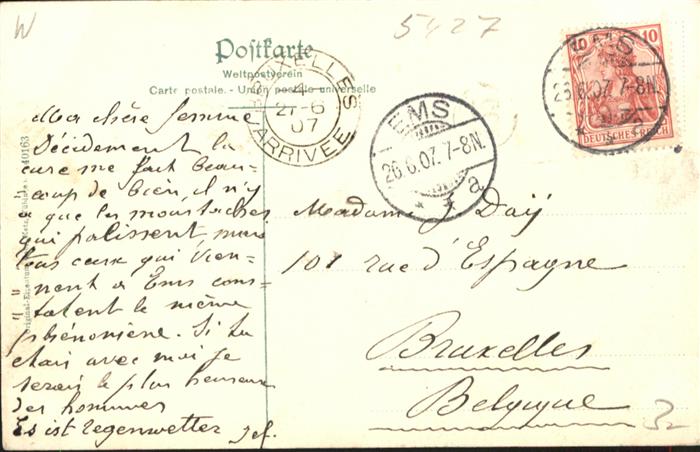 W
5427
Postkarte
Weltpostverein
Carte postale. - Union postale universelle
BRUXELLES
21-6
07
ARRIVÉE
EMS
26.6.07. 7-8N.
* a
EMS
26.6.07. 7-8N.
* a
10 10
DEUTSCHES REICH
40163
Ma chère femme
Décidement la
cure me fait beau-
coup de bien, il n'y
a que les moustaches
qui palissent, mais
tous ceux qui vien-
nent a Ems cons-
tatent le même
phénomène. Si tu
étais avec moi je
serais le plus heureux
des hommes
Es ist Regenwetter Jef.
Madame J. Daÿ
101 rue d'Espagne
Bruxelles
Belgique
32